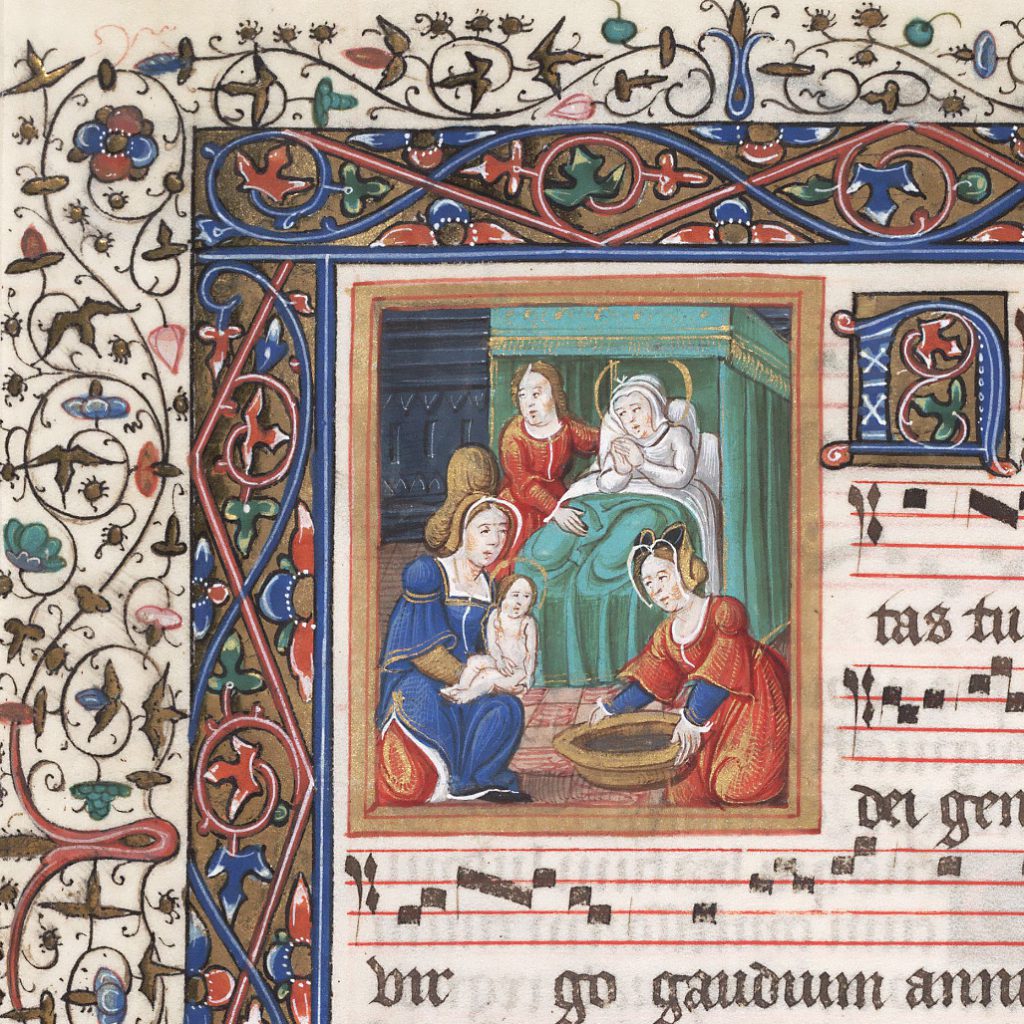 N
tas tu
dei gen
vir go gaudium annu